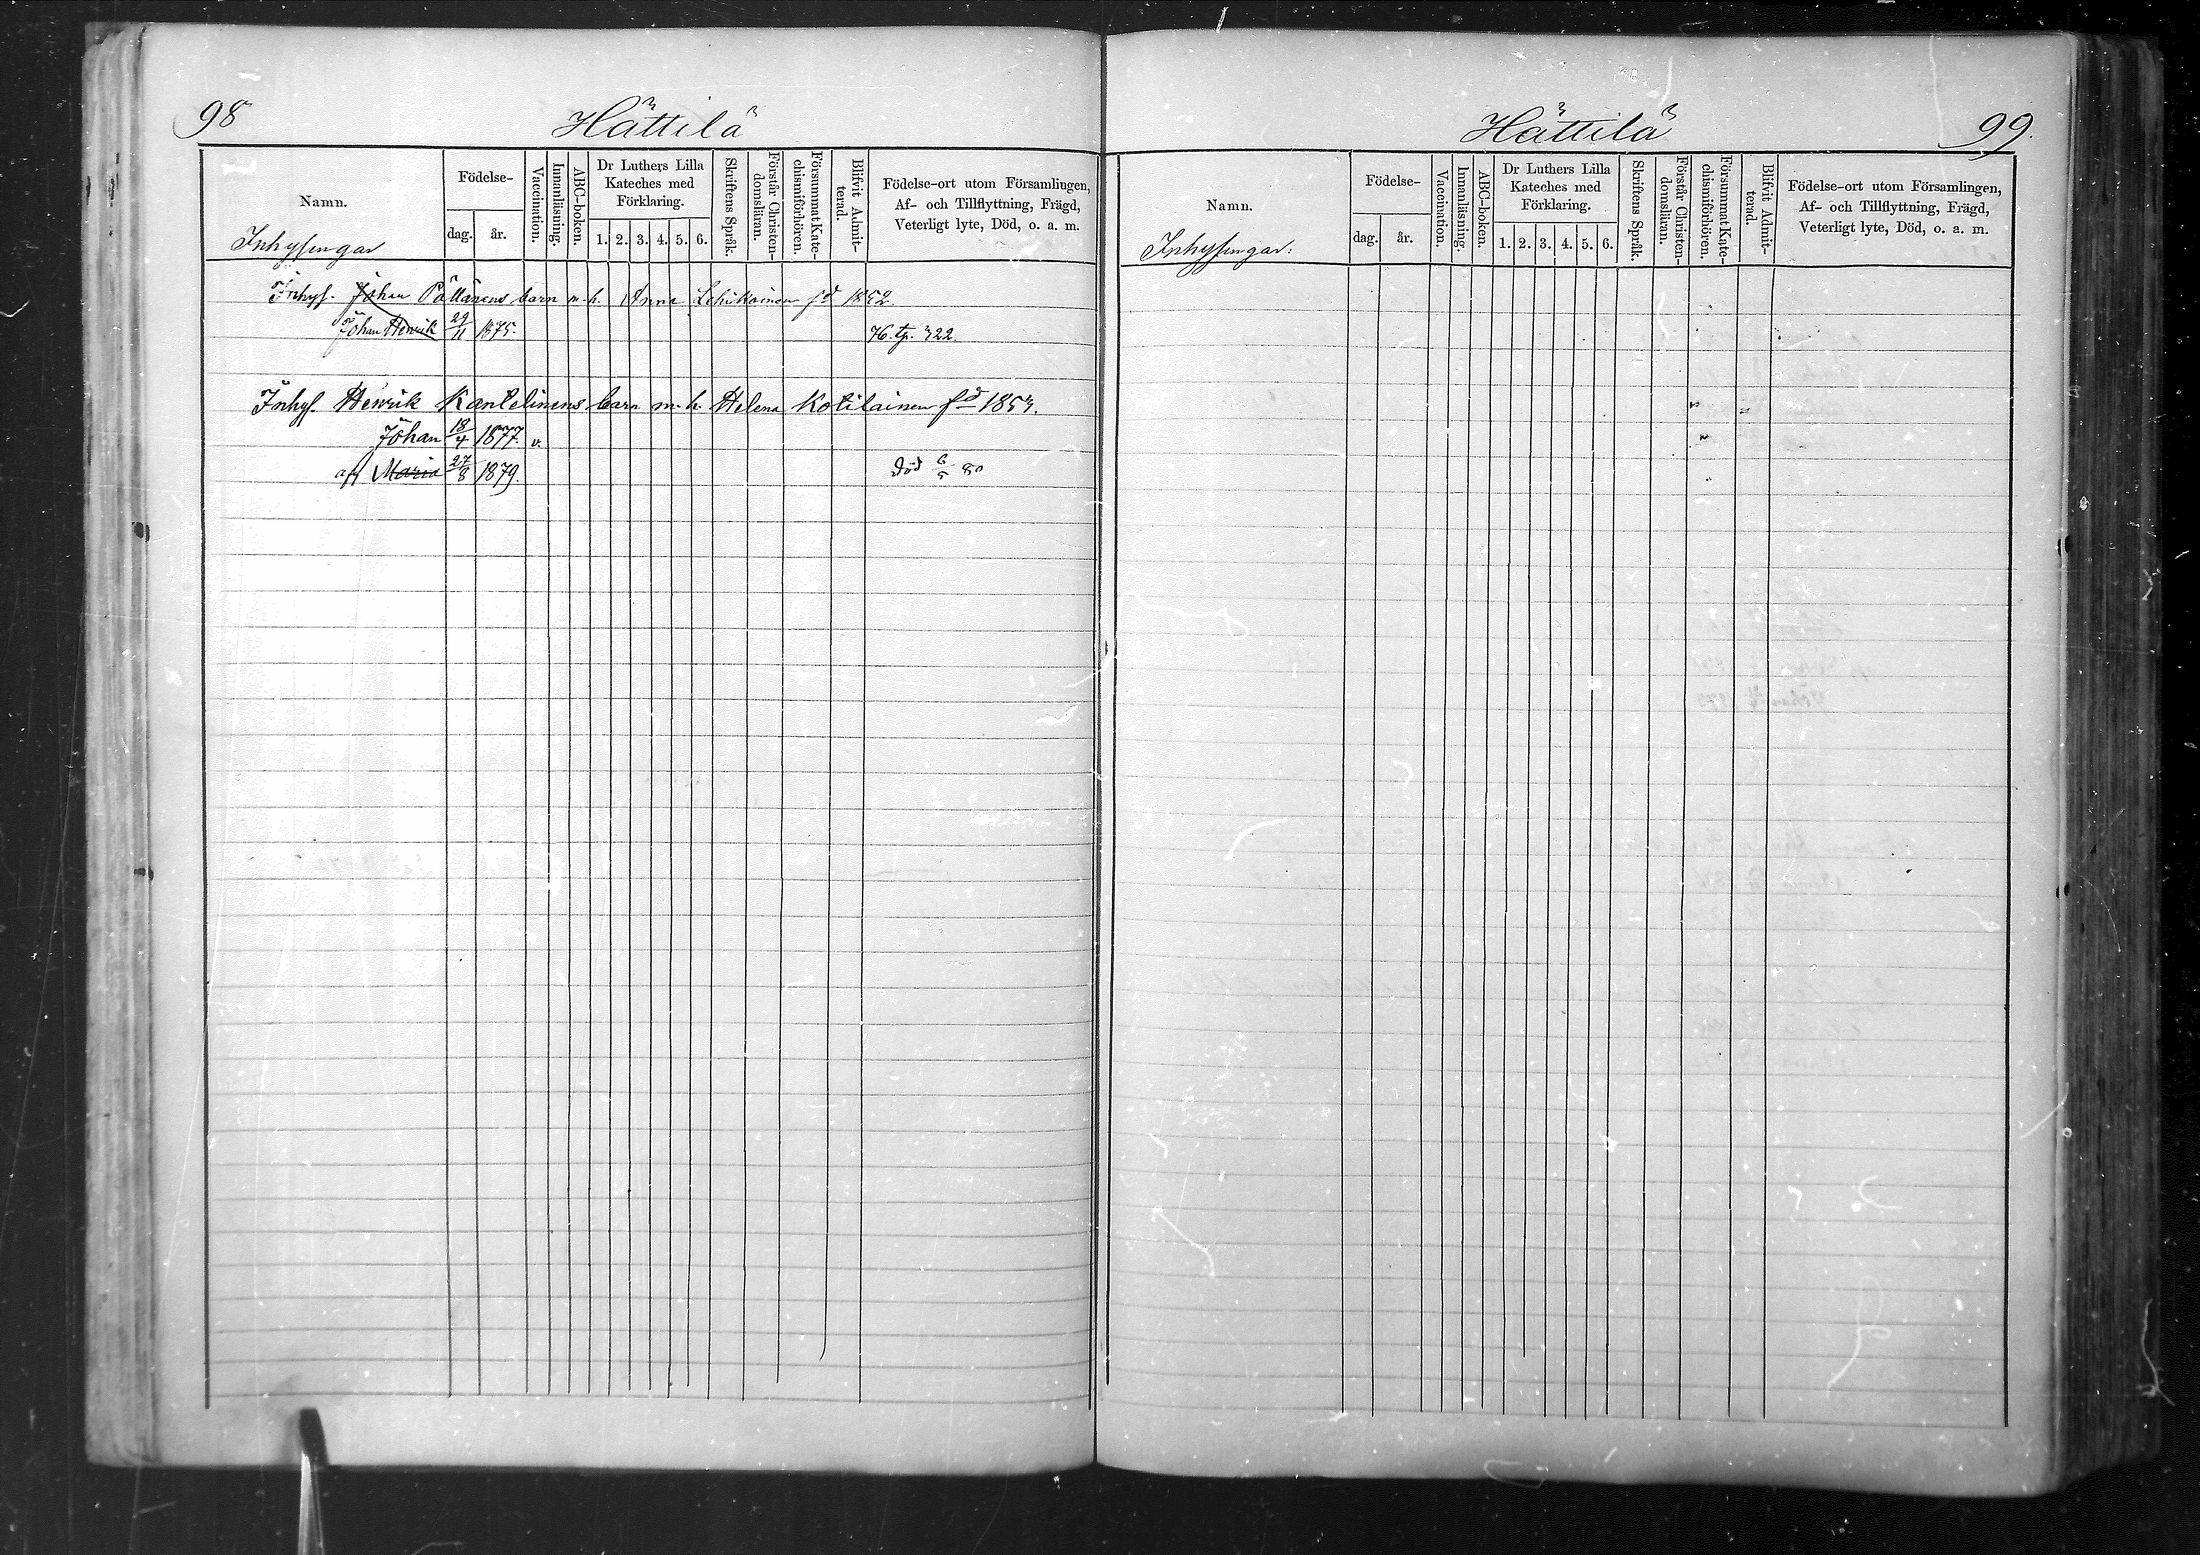 98
Hättilä
Namn.
Födelse-
dag.
år.
Vaccination.
Innanläsning.
ABC-boken.
Dr Luthers Lilla
Kateches med
Förklaring.
1. 2. 3. 4. 5. 6.
Skriftens Språk.
Förstår Christen-
domsläran.
Försummat Kate-
chismiförhören.
Blifvit Admit-
terad.
Födelse-ort utom Församlingen,
Af- och Tillflyttning, Frägd,
Veterligt lyte, Död, o. a. m.
Inhysingar
Inhys. Johan Pöllänens barn m. h. Anna Lehikoinen fd 1852.
Johan Henrik 29/11 1875. 76. 322.
Inhys. Henrik Kantelinens barn m. h. Helena Kotilainen fd 1853.
Johan 18/4 1877. v.
Maria 27/8 1879. Död 6/5 80
Hättilä
99.
Namn.
Födelse-
dag.
år.
Vaccination.
Innanläsning.
ABC-boken.
Dr Luthers Lilla
Kateches med
Förklaring.
1. 2. 3. 4. 5. 6.
Skriftens Språk.
Förstår Christen-
domsläran.
Försummat Kate-
chismiförhören.
Blifvit Admit-
terad.
Födelse-ort utom Församlingen,
Af- och Tillflyttning, Frägd,
Veterligt lyte, Död, o. a. m.
Inhysingar.